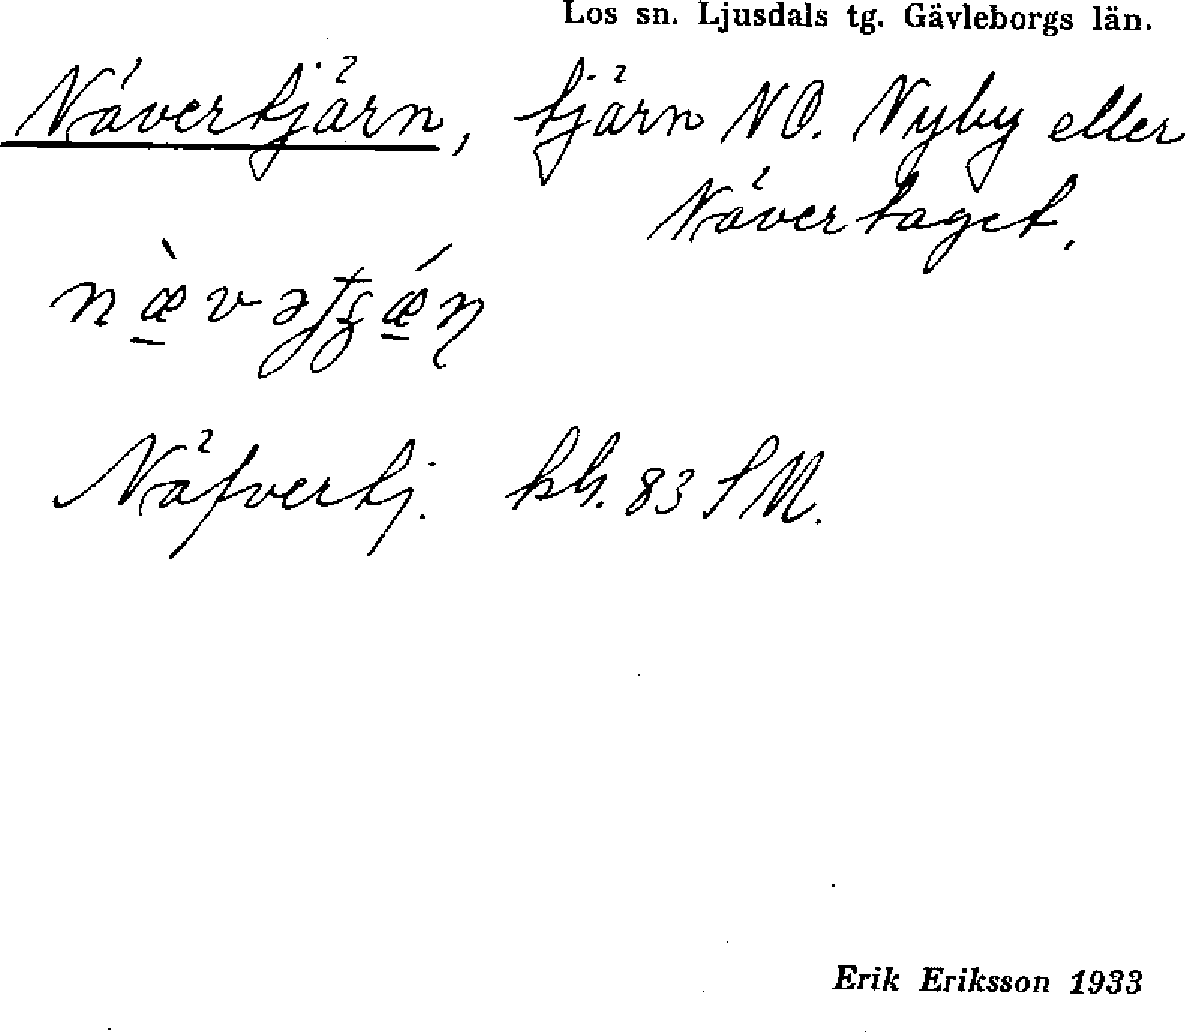 Los sn. Ljusdals tg. Gävleborgs län.
Nävertjärn, tjärn NO. Nyby eller
Nävertaget.
Näfvertj. kbl. 83 SM.
Erik Eriksson 1933